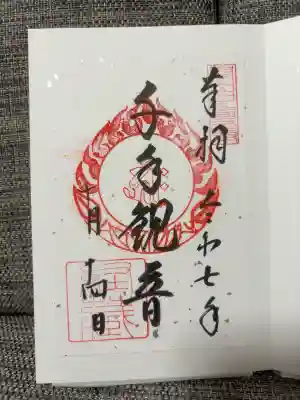 奉拝 令和七年
千手観音
十月
十四日